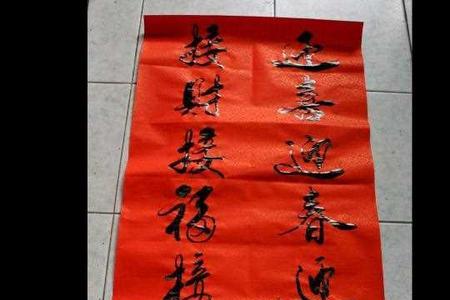 迎喜迎春迎
接财接福接